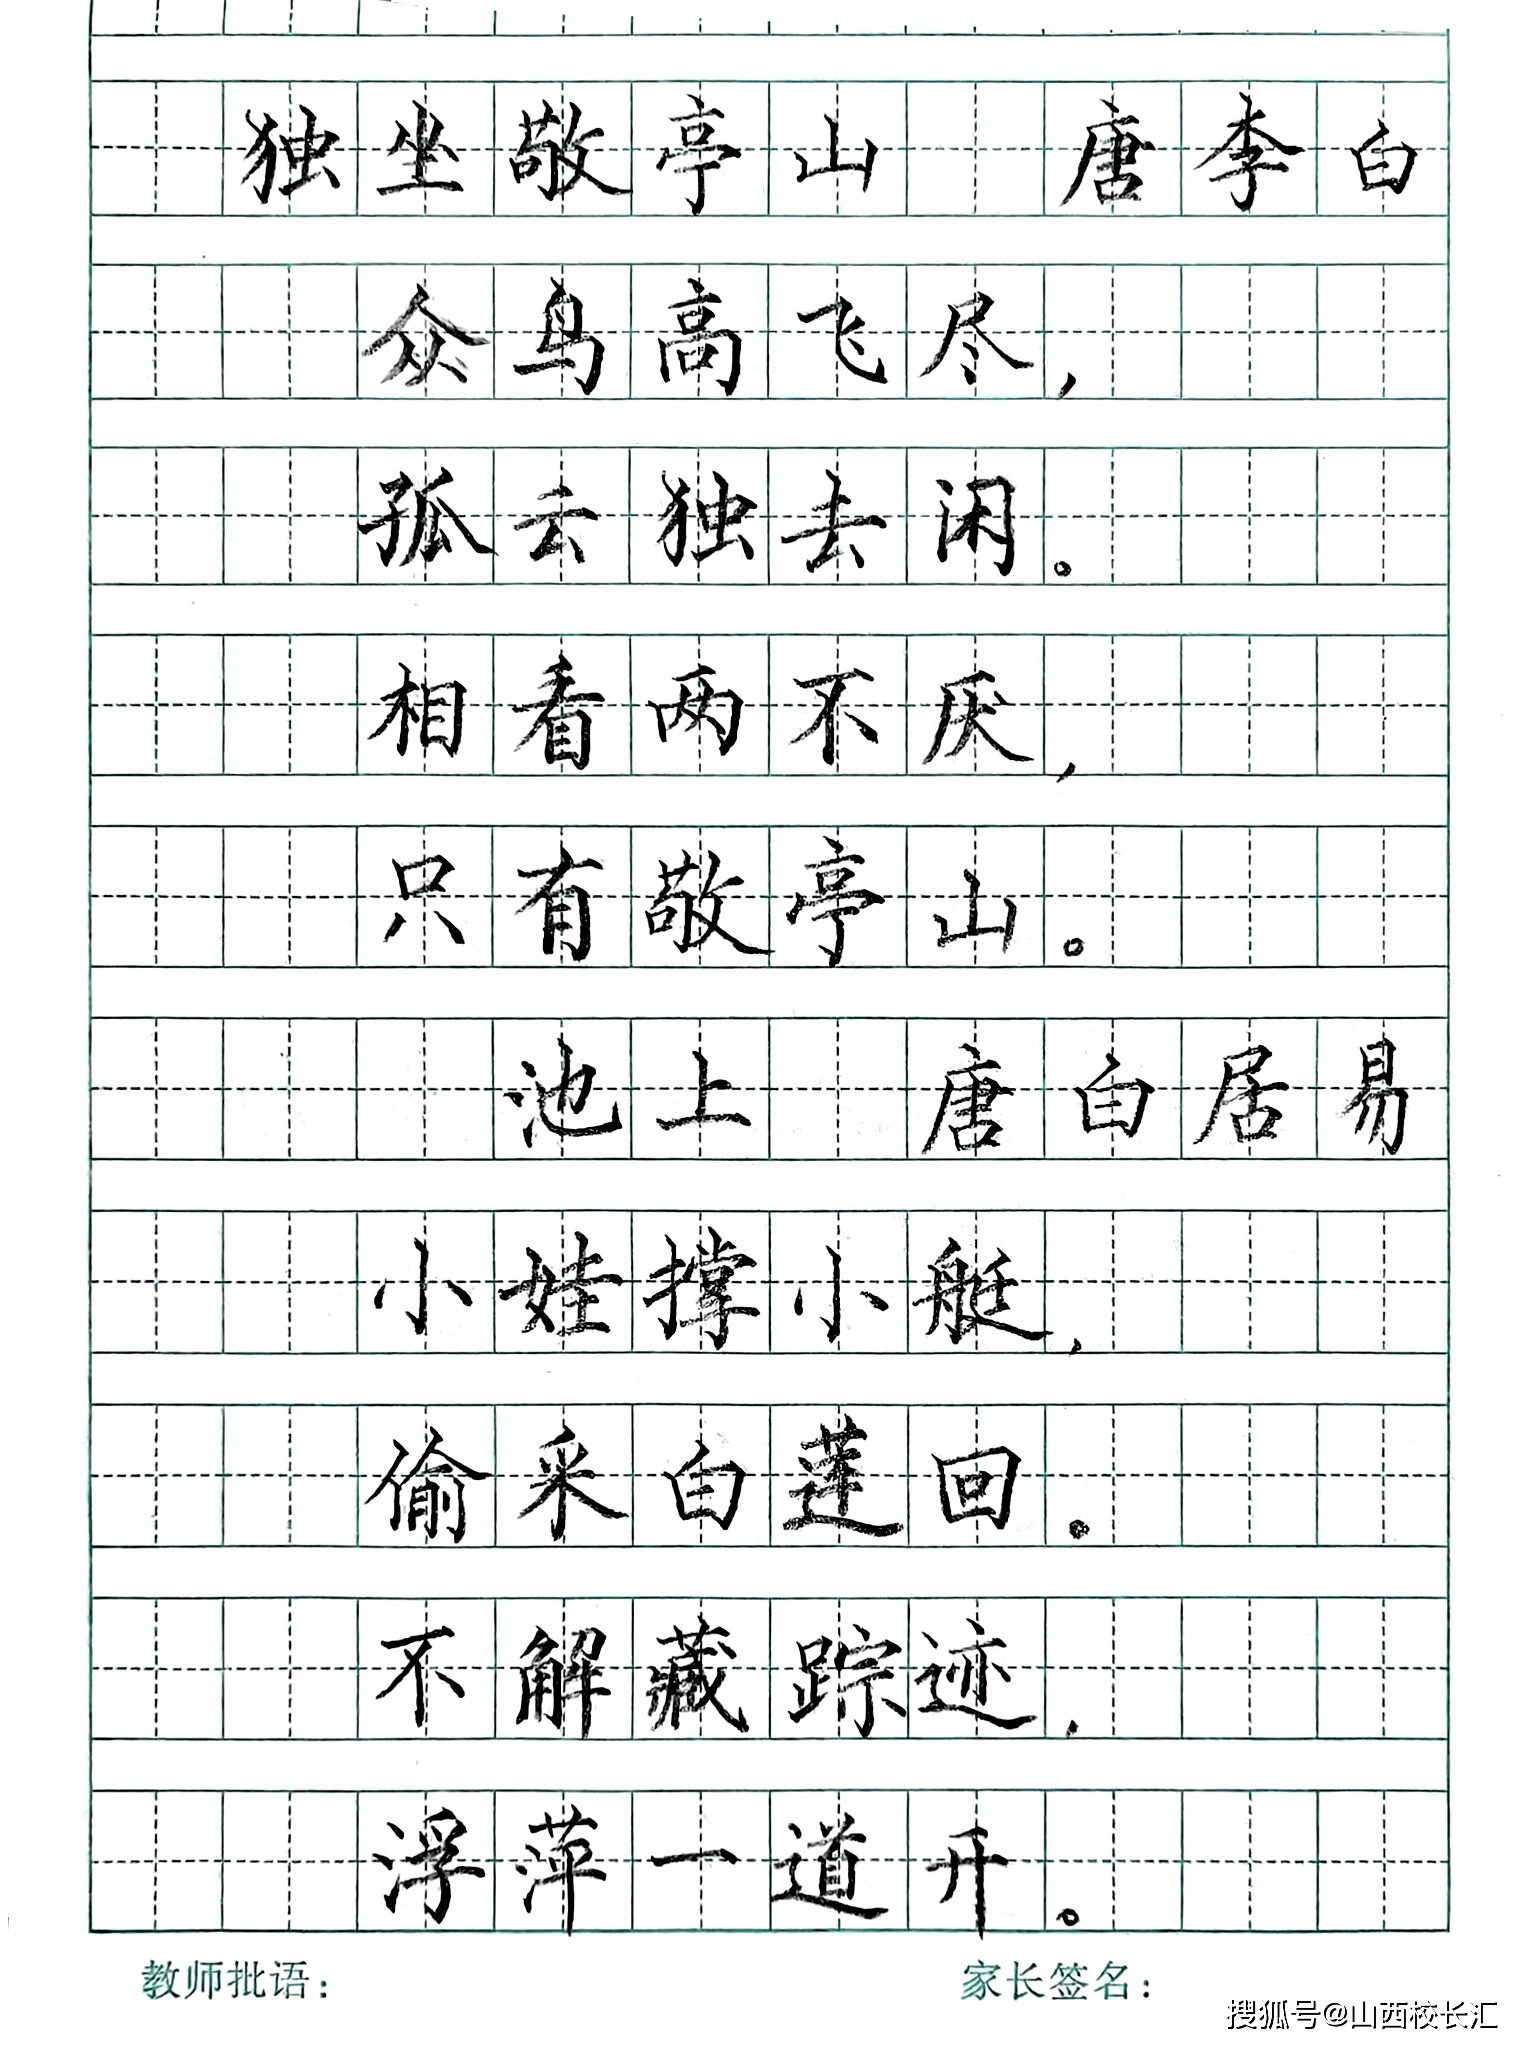 独坐敬亭山 唐李白
众鸟高飞尽，
孤云独去闲。
相看两不厌，
只有敬亭山。
池上 唐白居易
小娃撑小艇，
偷采白莲回。
不解藏踪迹，
浮萍一道开。
教师批语： 家长签名：
搜狐号@山西校长汇